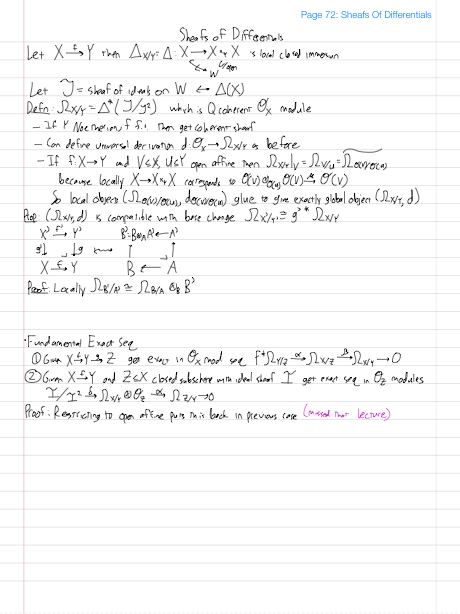 Page 72: Sheafs Of Differentials
Sheafs of Differentials
Let X →f Y then Δ_{X/Y} = Δ : X → X ×_Y X is local closed immersion
W open
Let J = sheaf of ideals on W ↔ Δ(X)
Defn: Ω_{X/Y} = Δ*(J/J²) which is Qcoherent O_X module
- If Y Noetherian, f f.t. then get coherent sheaf
- Can define universal derivation d: O_X → Ω_{X/Y} as before
- If f: X → Y and V ⊆ X, U ⊆ Y open affine then Ω_{X/Y}|_V = Ω_{V/U} = Ω_{O(V)/O(U)}
because locally X → X ×_Y X corresponds to O(V) ⊗_{O(U)} O(V) → O(V)
So local objects (Ω_{O(V)/O(U)}, d_{O(V)/O(U)}) glue to give exactly global object (Ω_{X/Y}, d)
Prop (Ω_{X/Y}, d) is compatible with base change Ω_{X'/Y'} ≅ g'* Ω_{X/Y}
X' →f' Y' B' = B ⊗_A A' ← A'
g'↓ ↓g ↑ ↑
X →f Y B ← A
Proof: Locally Ω_{B'/A'} ≅ Ω_{B/A} ⊗_B B'
·Fundamental Exact Seq
① Given X →f Y →g Z get exact in O_X mod seq f*Ω_{Y/Z} →α Ω_{X/Z} →β Ω_{X/Y} → 0
② Given X →f Y and Z ⊆ X closed subscheme with ideal sheaf I get exact seq in O_Z modules
I/I² →δ Ω_{X/Y} ⊗ O_Z →α Ω_{Z/Y} → 0
Proof: Restricting to open affine puts this back in previous case (missed that lecture)